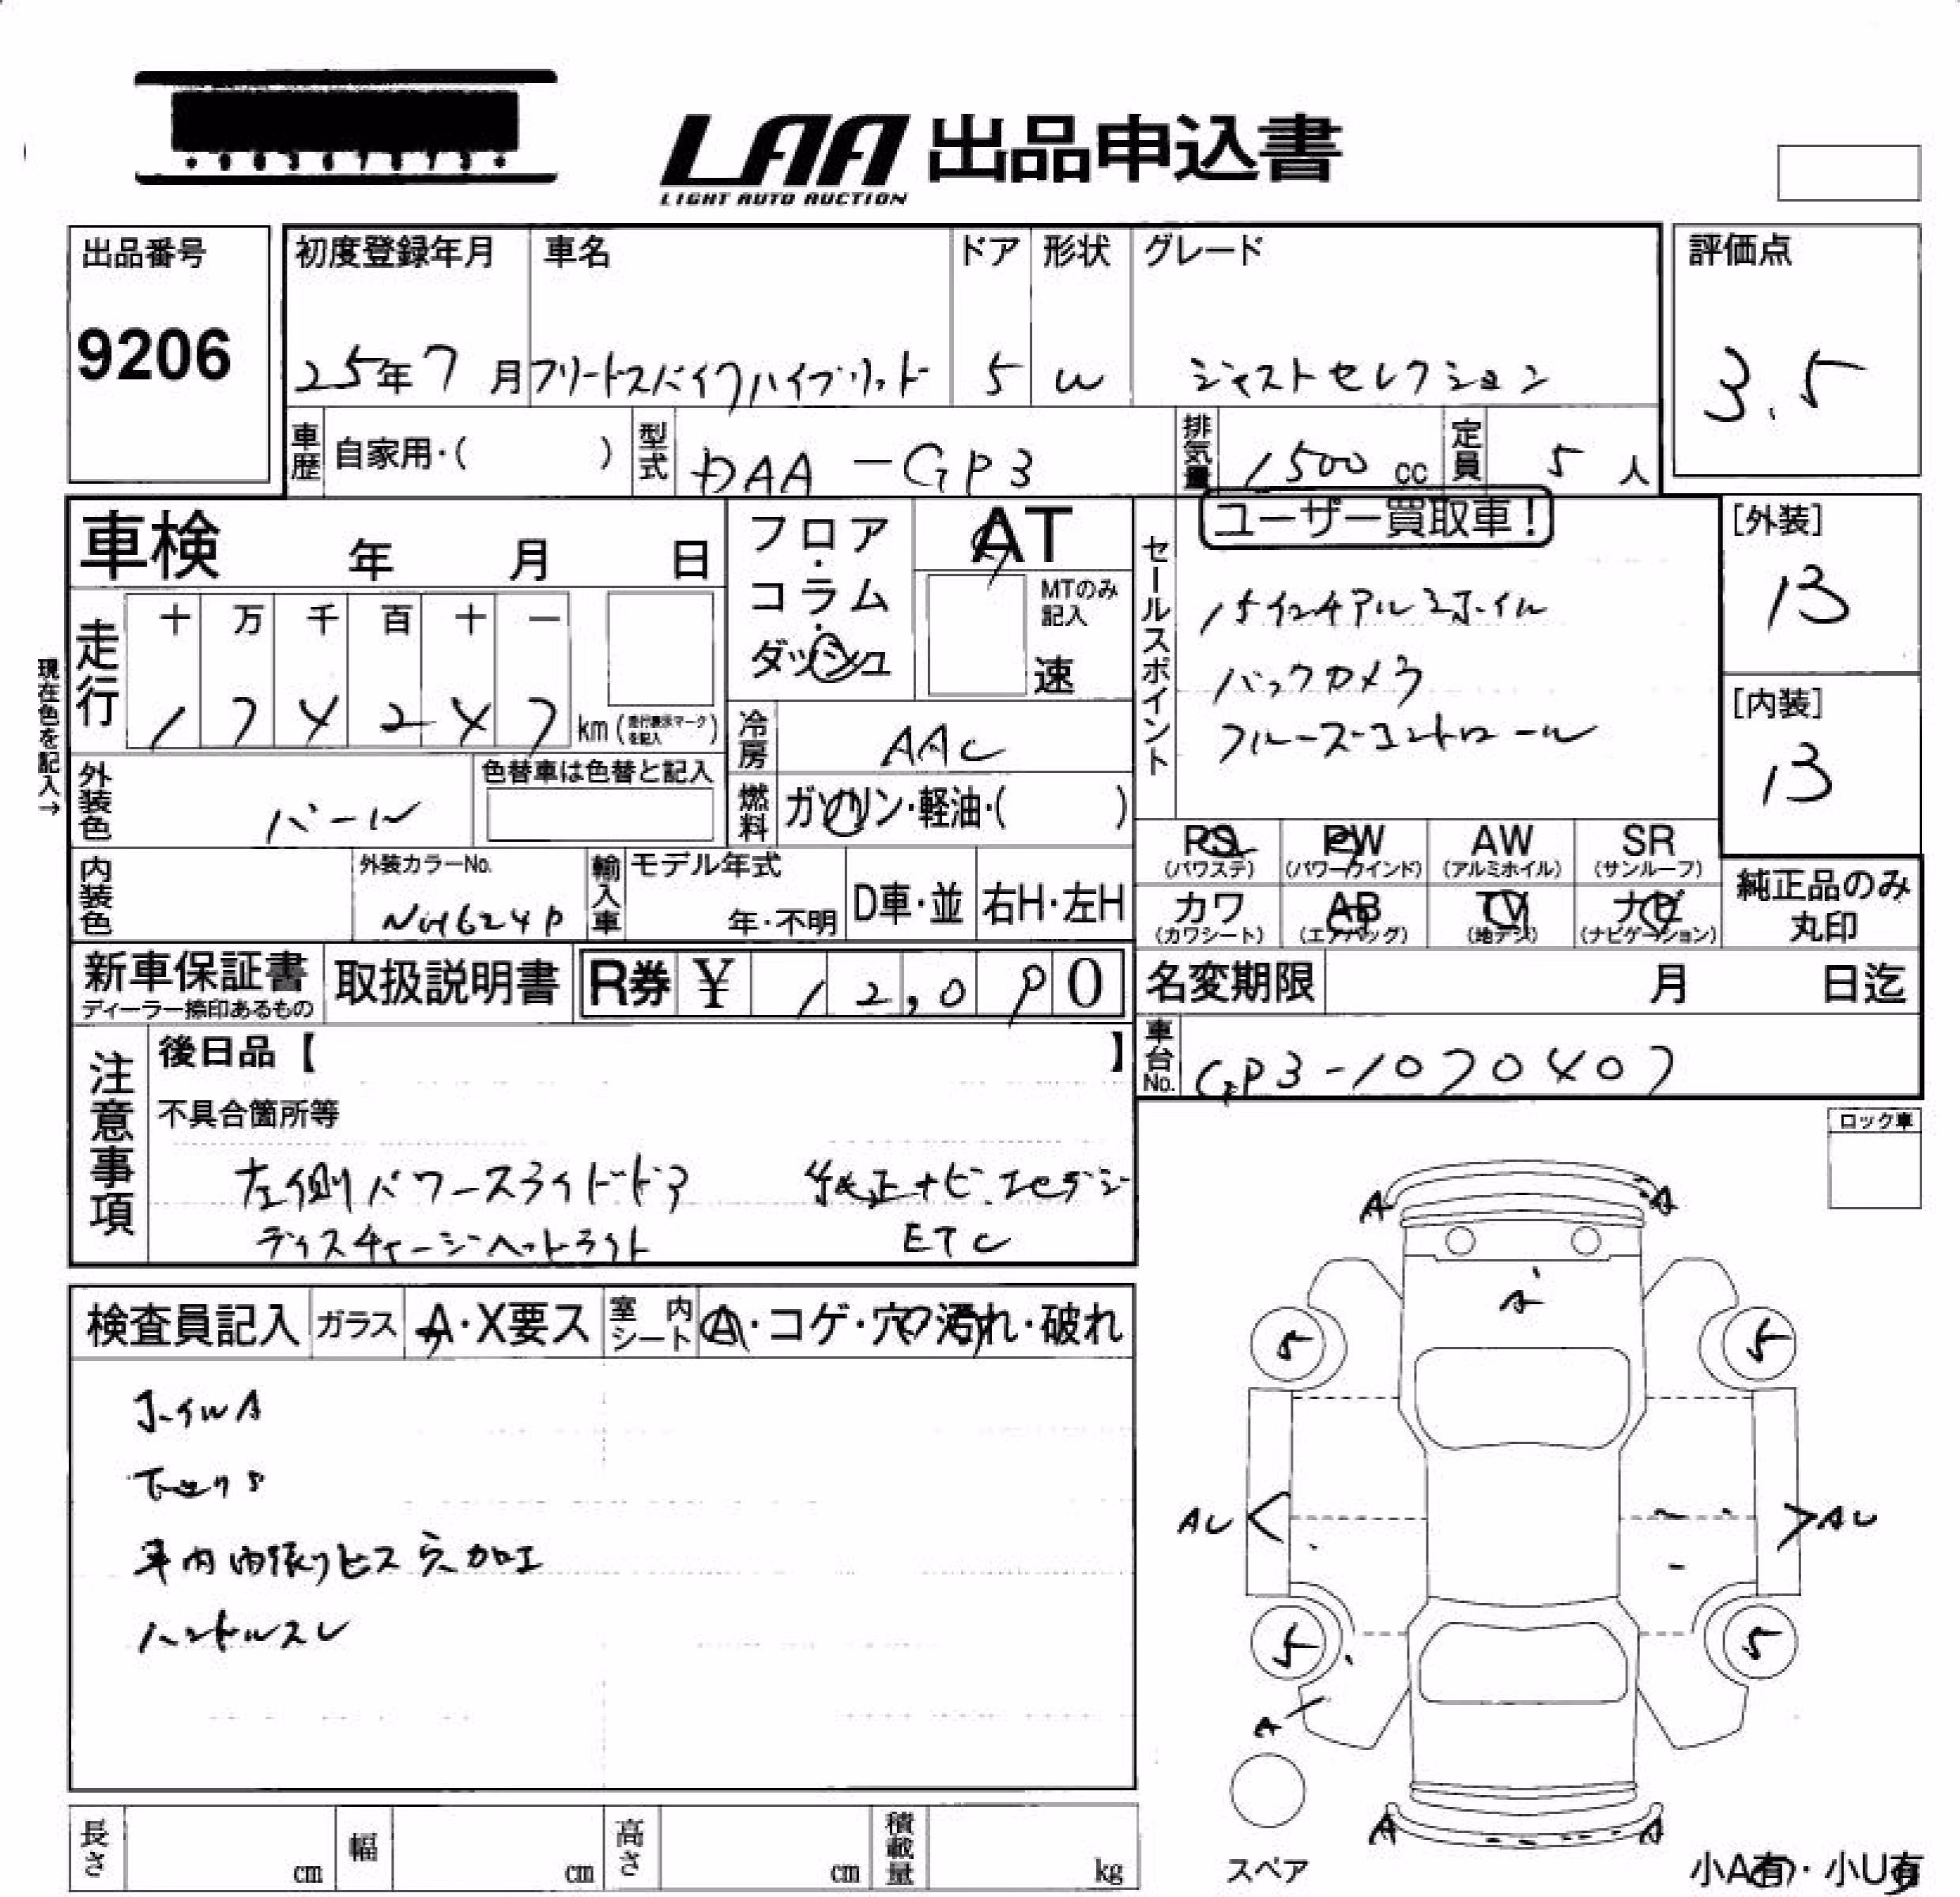 LAA 出品申込書
LIGHT AUTO AUCTION
出品番号
9206
初度登録年月 車名 ドア 形状 グレード
25年7月 フリードスパイクハイブリッド 5 W ジャストセレクション
評価点
3.5
車歴 自家用・( ) 型式 DAA-GP3 排気量 1500 cc 定員 5人
車検 年 月 日
フロア・コラム・ダッシュ
AT
MTのみ記入
速
セールスポイント
ユーザー買取車!
15インチアルミホイル
バックカメラ
クルーズコントロール
[外装]
13
[内装]
13
現在色を記入→
走行 十 万 千 百 十 一
174247 km (走行表示マークを記入)
冷房 AAC
外装色 パール
色替車は色替と記入
燃料 ガソリン・軽油・( )
PS (パワステ) PW (パワーウインド) AW (アルミホイル) SR (サンルーフ)
カワ (カワシート) AB (エアバッグ) TV (地デジ) ナビ (ナビゲーション)
純正品のみ丸印
内装色 外装カラーNo. NH624P
輸入車 モデル年式 年・不明 D車・並 右H・左H
新車保証書 ディーラー捺印あるもの
取扱説明書 R券 ¥ 12,090
名変期限 月 日迄
車台No. GP3-1070407
注意事項
後日品【 】
不具合箇所等
左側パワースライドドア 純正ナビ.地デジ
ディスチャージヘッドライト ETC
ロック車
検査員記入 ガラス A・X要ス 室内シート A・コゲ・穴・汚れ・破れ
ホイルA
下廻りS
車内内張りビス穴加工
ハンドルスレ
A A
A
5 5
AU AU
5 5
A
A A
スペア
小A有・小U有
長さ cm 幅 cm 高さ cm 積載量 kg